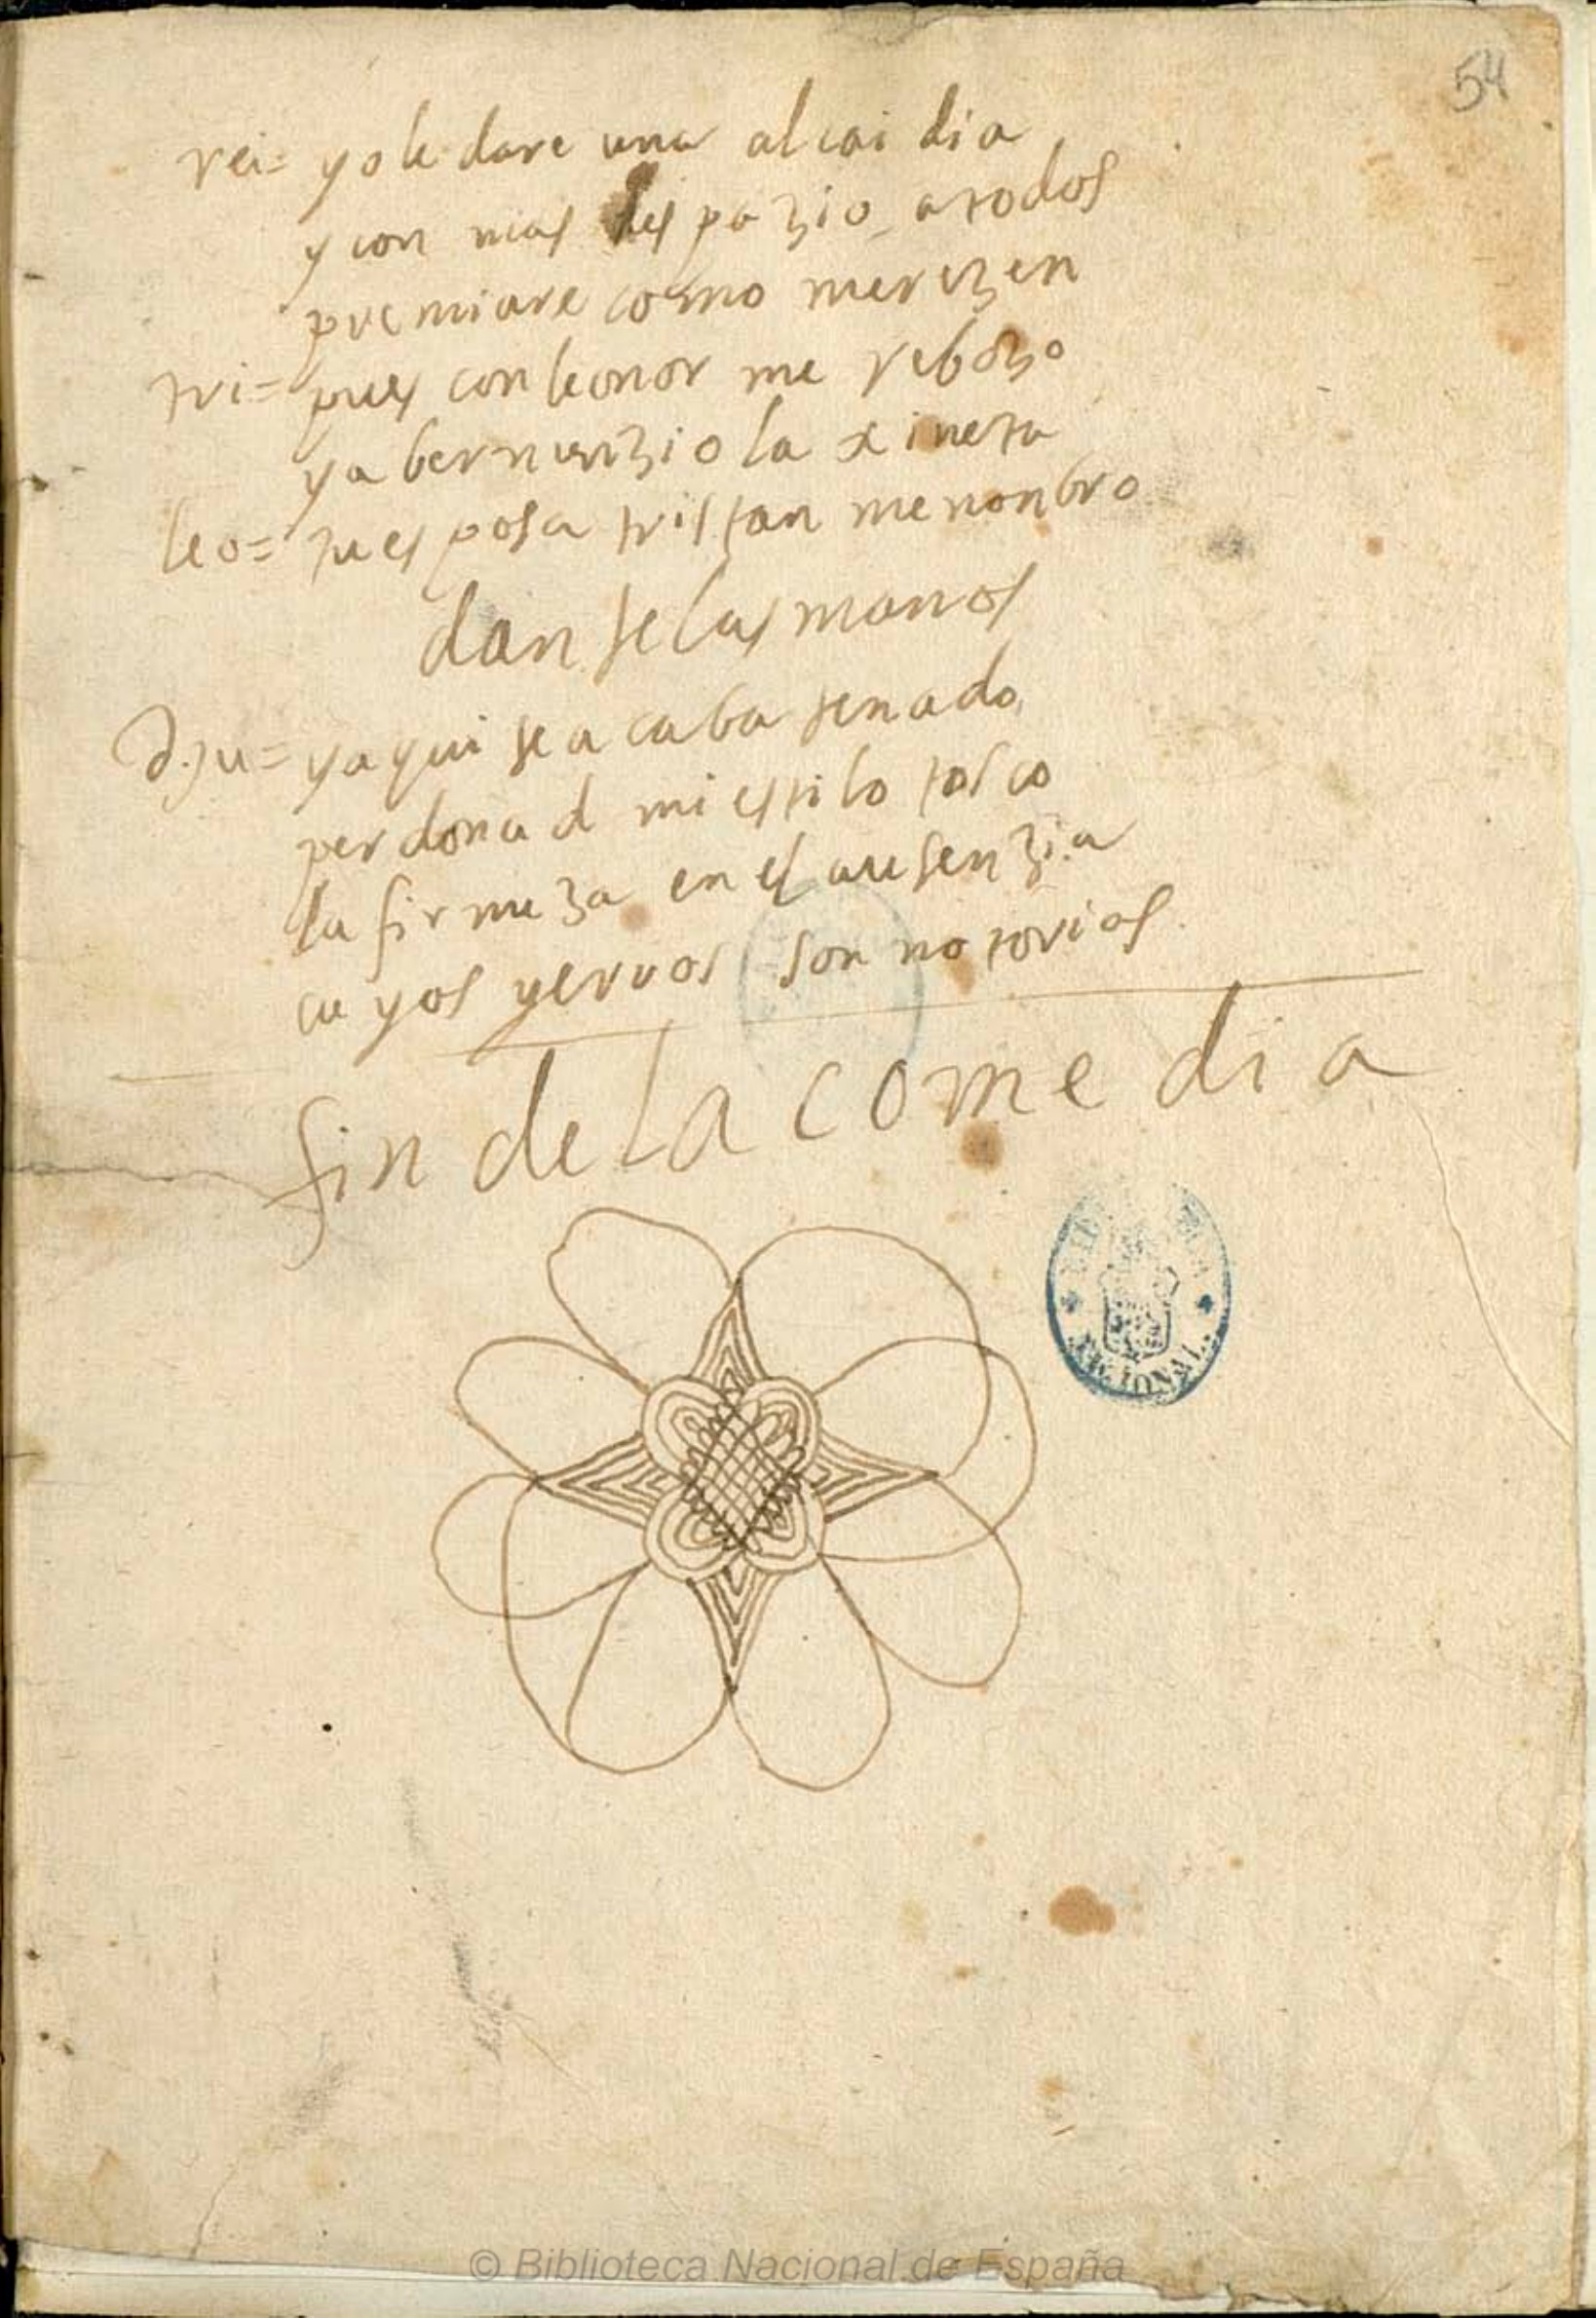 54
rei= yo le dare una alcaidia
y con mas despazio a todos
premiare como merezen
tri= pues con leonor me rebozo
y a bernunzio la xineta
leo= tu esposa tristan me nonbro
danse las manos
d. ju= y aqui se acaba senado
perdonad mi estilo tosco
la firmeza en el ausenzia
cuyos yerros son notorios
fin de la comedia
NACIONAL
© Biblioteca Nacional de España